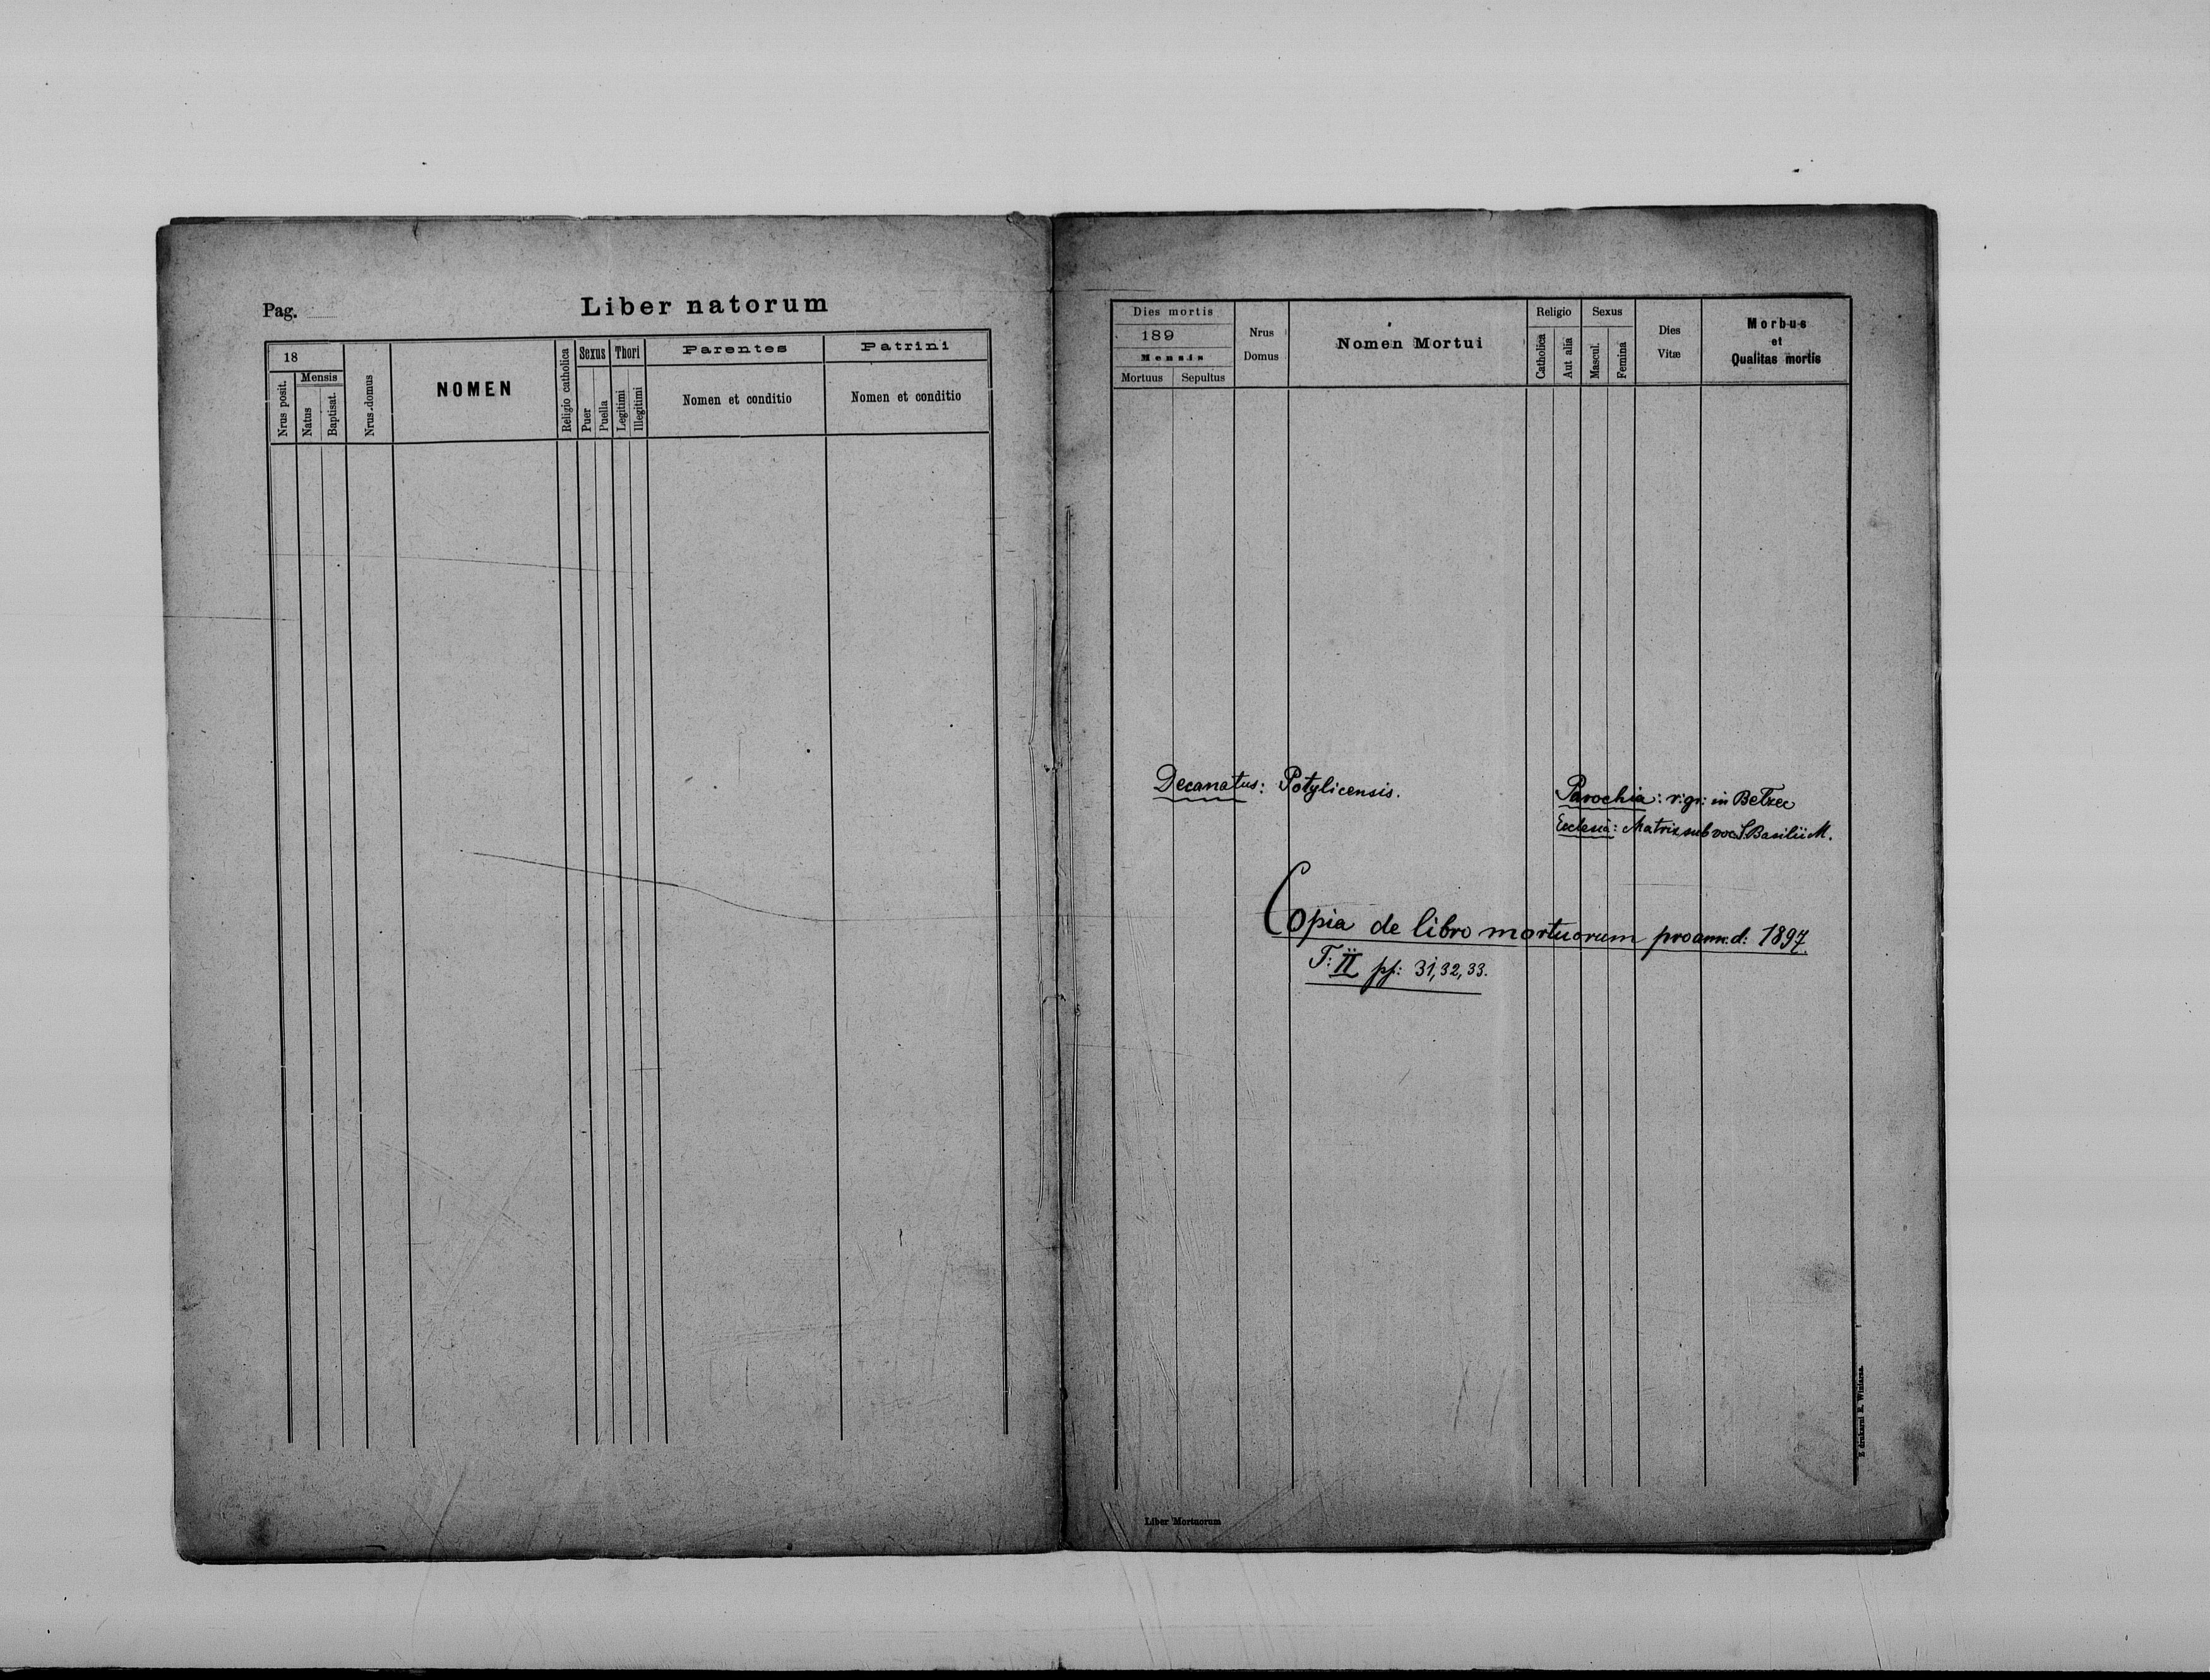 Pag.
Liber natorum
18
Nrus posit.
Mensis
Natus
Baptisat.
Nrus domus
NOMEN
Religio catholica
Sexus
Puer
Puella
Thori
Legitimi
Illegitimi
Parentes
Nomen et conditio
Patrini
Nomen et conditio
Dies mortis
189
Mensis
Mortuus
Sepultus
Nrus
Domus
Nomen Mortui
Religio
Catholica
Aut alia
Sexus
Mascul.
Femina
Dies
Vitæ
Morbus
et
Qualitas mortis
Decanatus: Potylicensis.
Parochia: r: gr: in Bełzec
Ecclesia: Matrix sub voc S. Basilii M.
Copia de libro mortuorum pro ann: d: 1897.
T: II pp: 31, 32, 33.
Z drukarni E. Winiarza.
Liber Mortuorum